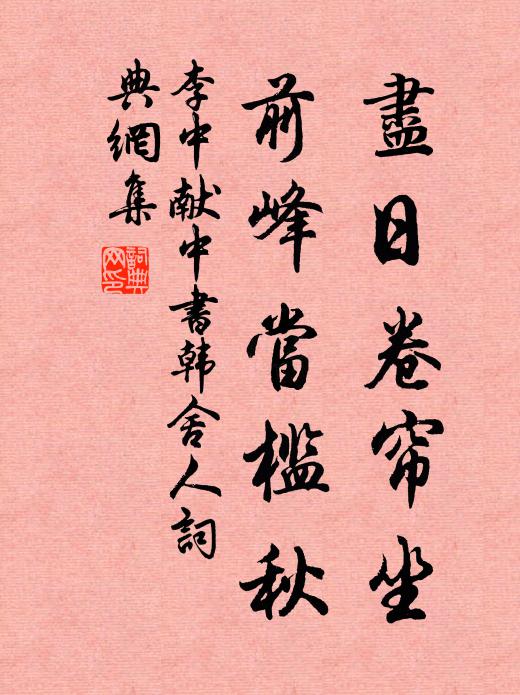 盡日卷帘坐
前峰當檻秋
李中献中書韩舍人詞
典網集
詞典网印